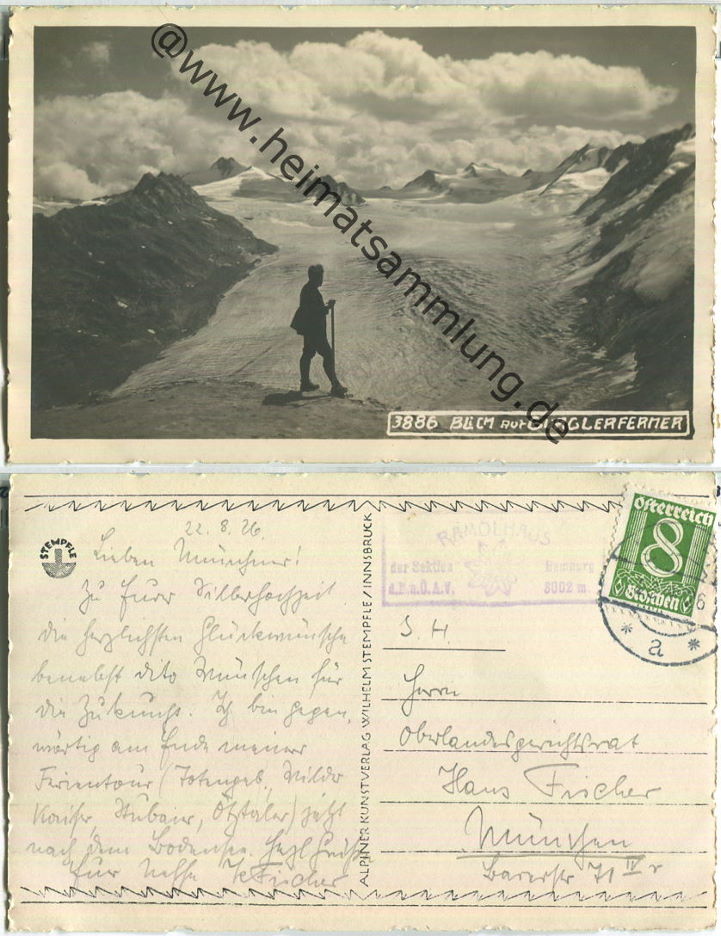 @www.heimatsammlung.de
3886 BLICK AUF GURGLERFERNER
STEMPFLE
22. 8. 26.
Lieben Münchner!
Zu Eurer Silberhochzeit
die herzlichsten Glückwünsche
benebst dito Wünschen für
die Zukunft. Ich bin gegen
wärtig am Ende meiner
Ferientour (Totengeb, Wilder
Kaiser, Stubaier, Ötztaler) jetzt
nach dem Bodensee. Herzl Grüße
Euer Neffe Fischer
ALPINER KUNSTVERLAG WILHELM STEMPFLE / INNSBRUCK
RAMOLHAUS
der Sektion Hamburg
d.D.u.Ö.A.V. 3002 m.
Österreich
8
Groschen
* a *
S. H.
Herrn
Oberlandesgerichtsrat
Hans Fischer
München
Barerstr 71 IV r